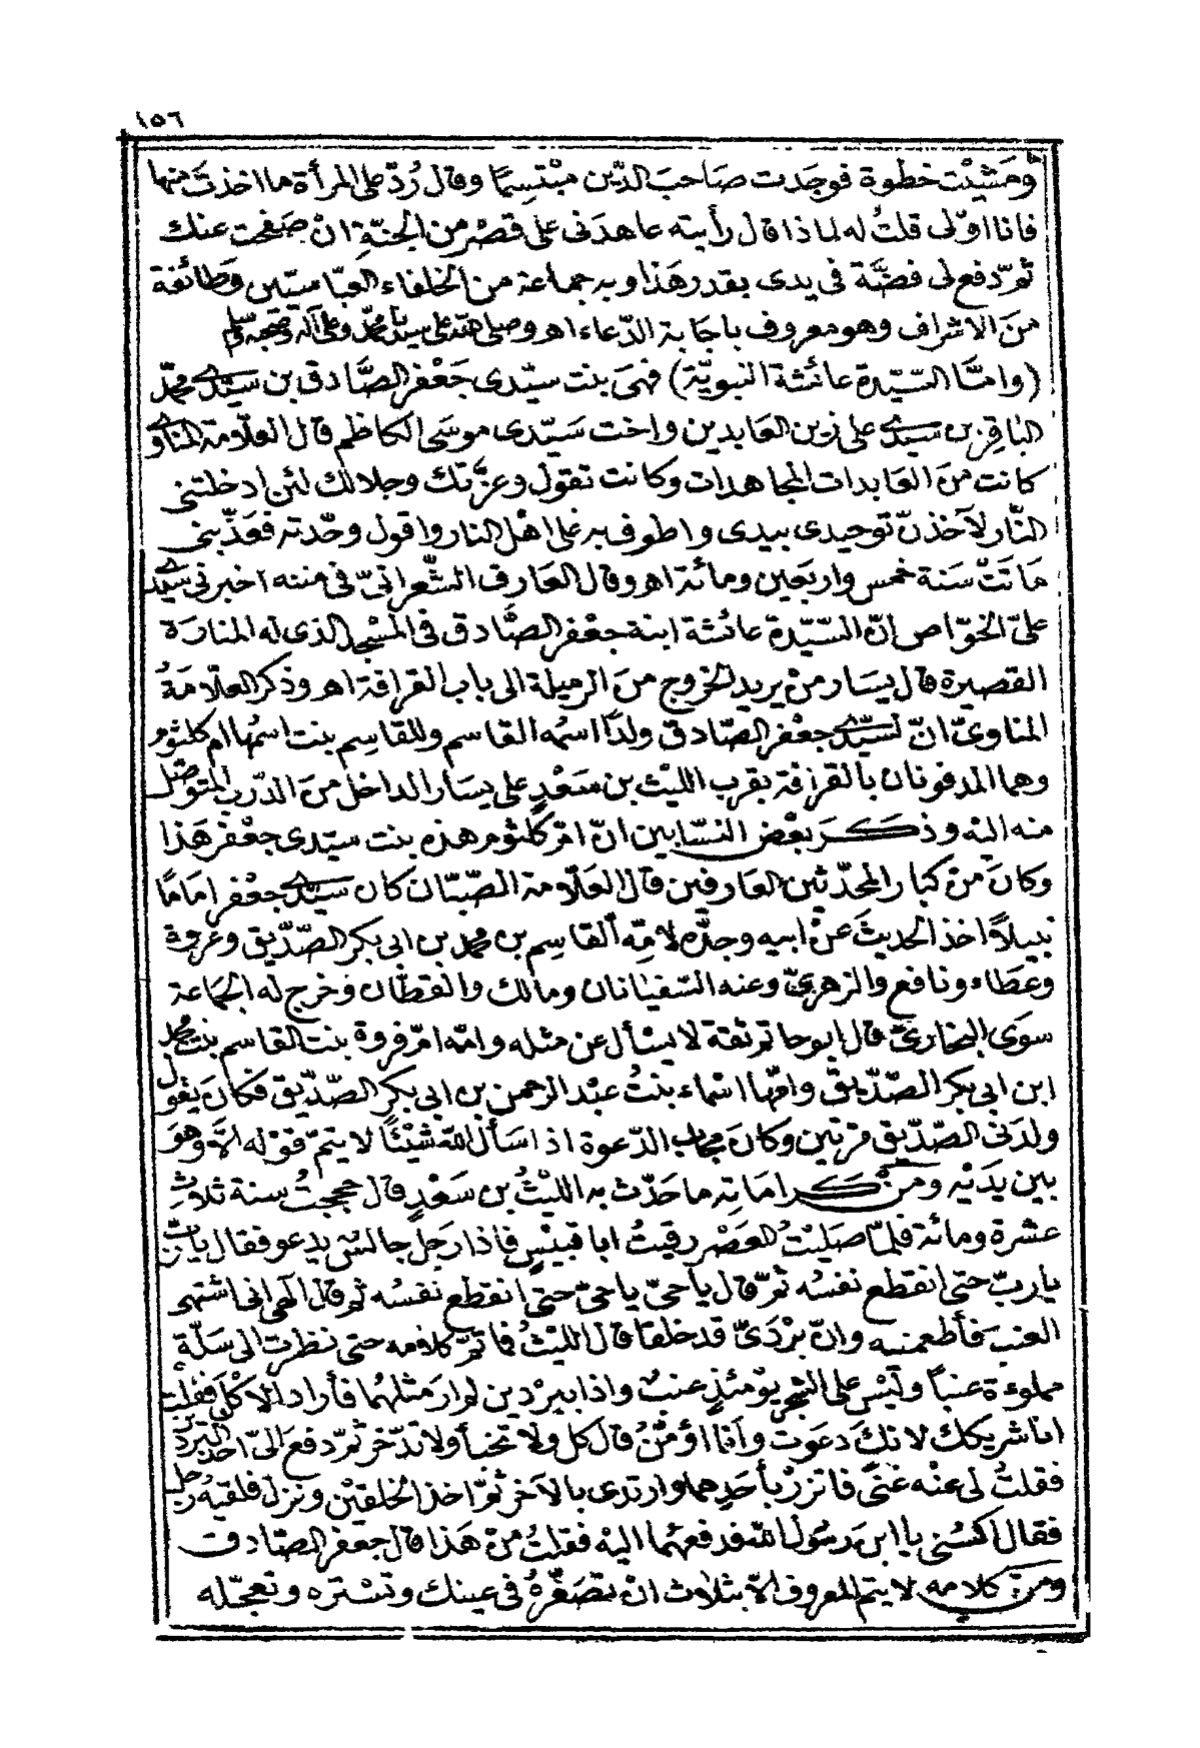 ١٥٦
ومَشيْت خطوة فوجَدت صَاحبَ الدّين مبْتسِمًا وقال رُدّ على المرأة ما اخذتَ منها
فانا اوْلى قلتُ له لماذا قال رأيته عاهدَنى على قصْر من الجنّةِ انْ صَفحت عنك
ثم دفع لى فضّة فى يدى بقدر هَذا وبه جماعة من الخلفاء العبّاسيّين وطائفة
منَ الاشراف وهو معروف باجَابة الدّعاء اهـ وصلى الله على سيدنا محمّد وعلى آله وصحبه وسلم
(وامّا السّيّدة عائشة النبويّة) فهىَ بنت سيّدى جَعْفر الصَّادق بن سيّدى محمّد
الباقِر بن سيّدى على زين العابدين واخت سَيّدى موسَى الكاظم قال العلّامة المناوى
كانت منَ العَابدات المجاهدات وكانت تقول وعزّتك وجلالك لئن ادخلتنى
النّار لآخذنّ توحيدى بيدى واطوف به على اهْل النار واقول وحّدته فعَذّبنى
مَاتَتْ سَنة خمس واربَعين ومائة اهـ وقال العَارف الشّعرانىّ فى مننه اخبرنى سيّدى
علىّ الخوّاص انّ السّيّدة عائشة ابنة جعْفر الصَّادق فى المسْجد الذى له المنارة
القصيرة قال يسَار منْ يريد الخروج منَ الرميلة الى باب القرافة اهـ وذكر العلّامَةُ
المناوىّ انّ لسيّدى جعْفر الصّادق ولدًا اسمُه القاسم وللقاسِم بنت اسمُها ام كلثوم
وهما المدفونان بالقرافة بقرب الليْث بن سَعْدٍ على يسَار الداخل منَ الدّرب المتوصّل
منه اليْه وذكرَ بعْض النسّابين انّ امّ كلثوم هذه بنت سيّدى جعْفر هَذا
وكانَ منْ كبار المحدّثين العارفين قال العَلّامة الصّبّان كان سيّدى جعْفر امَامًا
نبيلاً اخذ الحديثَ عنْ ابيه وجدّه لامّه القاسِم بن محمد بن ابى بكر الصّدّيق وعروة
وعطاء ونافع والزهرىّ وعنه السّفيانان ومالك والقطّان وخرج له الجَماعة
سوَى البخارىّ قال ابو حاتم ثقة لا يسْأل عن مثله وامّه امّ فروة بنت القاسم بن محمد
ابن ابى بكر الصّدّيق وامّها اسْماء بنتُ عبْد الرحمن بن ابى بكر الصّدّيق فكانَ يقول
ولدَنى الصّدّيق مرّتين وكانَ مجابَ الدّعوة اذا سَأل اللّه شيْئًا لا يتمّ قوْله الّا وهوَ
بين يَدَيْه ومنْ كراماته ما حَدّث به الليْثُ بن سَعْدٍ قال حججتُ سنة ثلاث
عشرة ومائة فلمّا صَليْتُ العَصْر رقيتُ ابا قبيْسٍ فاذا رَجل جالسٌ يدعو فقال يا ربّ
يا ربّ حتى انقطع نفسُه ثمّ قال يا حىّ يا حىّ حتى انقطع نفسُه ثم قال الٓهى انى اشتهى
العنب فأطعمنيه وانّ برْدَىّ قد خلقا قال الليْثُ فما تمّ كلامه حتى نظرت الى سَلّة
مملوءة عنبًا وليْس على الشجر يوْمئذٍ عنبٌ واذا ببرْدين لم ار مثلهُما فأراد الاكْل فقلت
انا شريكك لانكَ دعَوت وأنا اؤمّنُ قال كل ولا تخبأ ولا تدّخر ثم دفع الىّ احد البرْدين
فقلتُ لى عنْه غنًى فاتزرْ بأحَدِهما وارتدى بالآخر ثمّ اخذ الخلقيْن ونزل فلقيه رجل
فقال اكسُنى يا ابن رسُول اللّه فدفعهُما اليْه فقلتُ منْ هَذا قال جعفر الصّادق
ومنْ كلامه لا يتم المعروف الاّ بثلاث انْ تصَغّرهُ فى عينك وتسْتره وتعجّله